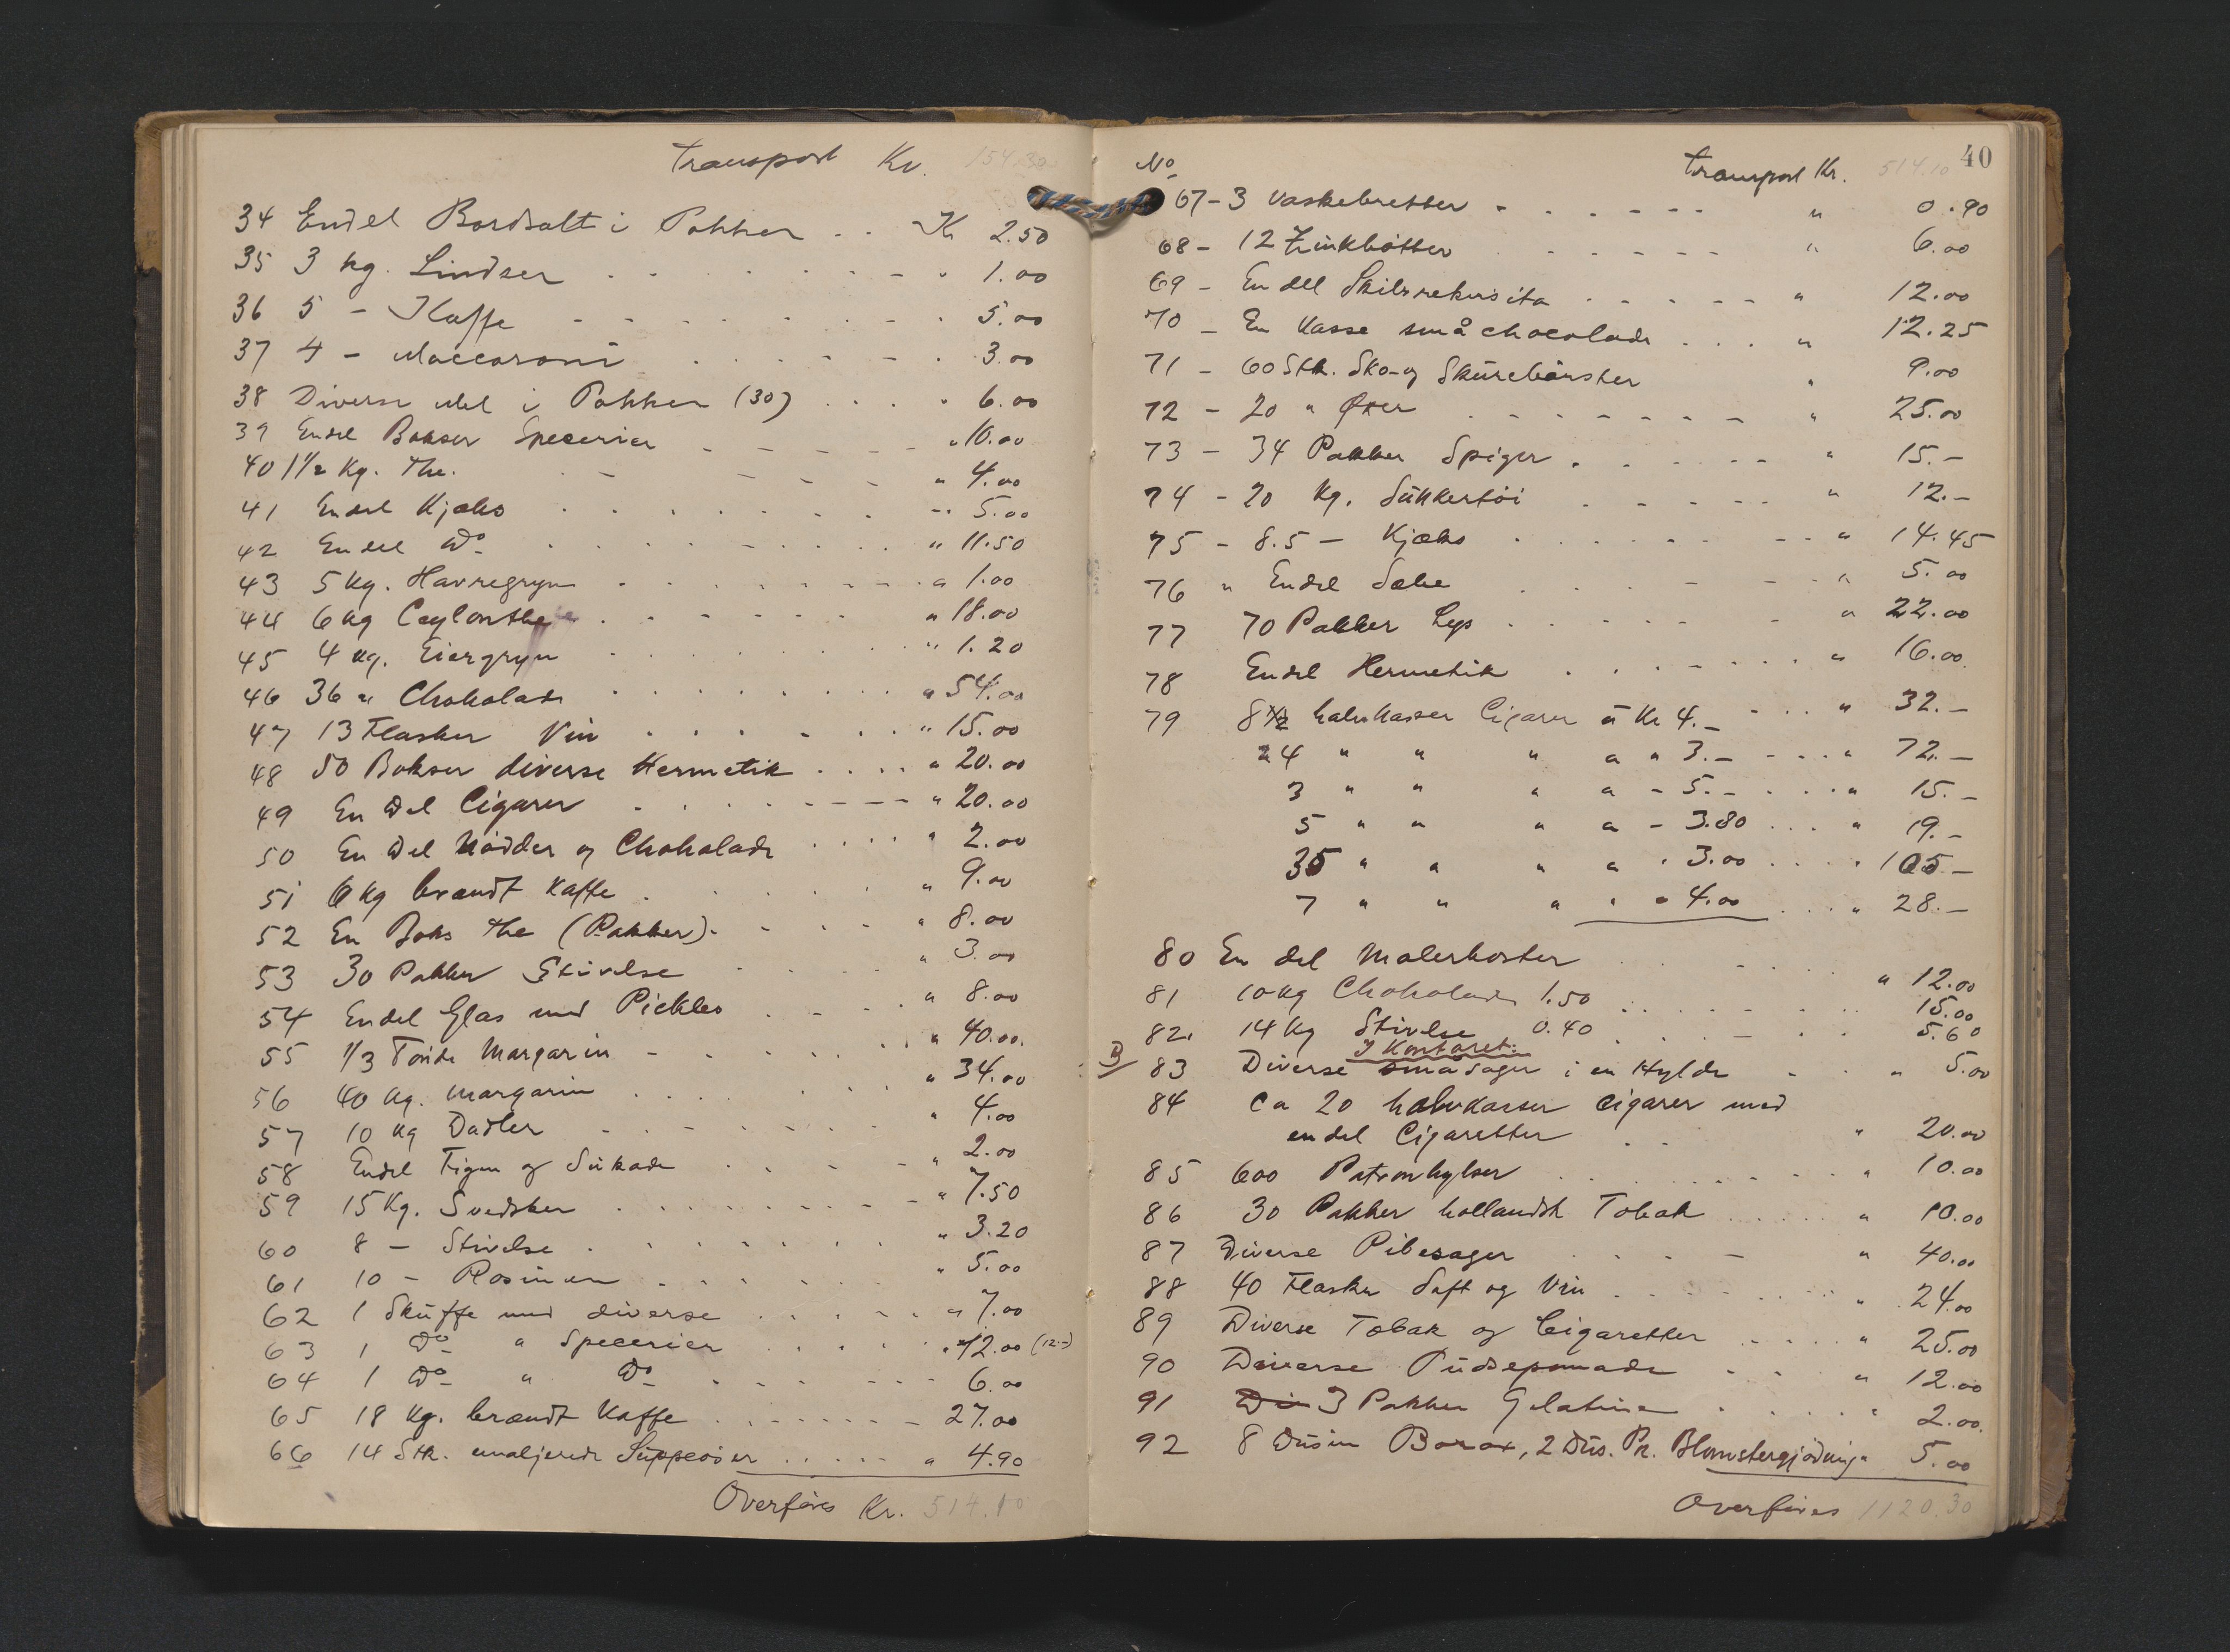 Transport Kr. 154.30
34 Endel Bordsalt i Pakker . . Kr 2.50
35 3 kg. Lindser . . . . . . . " 1.00
36 5 - Kaffe - - - - - - . . 5.00
37 4 - Maccaroni . . . . - - . 3.00
38 Diverse Mel i Pakker (30) . . . " 6.00
39 Endel Bokser Specerier - - - - - " 10.00
40 1 1/2 Kg. The. - - - - " 4.00
41 Endel Kjæks . . . . . . . -" 5.00
42 Endel Do . . . . . . . . " 11.50
43 5 kg. Havregryn . . . . . . . " 1.00
44 6 kg Ceylonthe . . . . . . " 18.00
45 4 kg. Eiergryn . . . . . . . " 1.20
46 36 " Chokolade . . . . . . . " 54.00
47 13 Flasker Vin . . . . . . " 15.00
48 50 Bokser diverse Hermetik . . . . " 20.00
49 En Del Cigarer . . . . . - - - " 20.00
50 En Del Nödder og Chokolade . . . . " 2.00
51 6 kg brændt Kaffe . . . . . . " 9.00
52 En Boks The (Pakker). - . . . " 8.00
53 30 Pakker Stivelse . . . . " 3.00
54 Endel Glas med Pickles . . - . " 8.00
55 1/3 Tönde Margarin - - . . . . " 40.00.
56 40 kg. Margarin . . . . . . . " 34.00
57 10 kg Dadler . - - - - - - " 4.00
58 Endel Figen og Sukade . . . - - " 2.00
59 15 Kg. Svedsker . . . . . . . - " 7.50
60 8 - Stivelse . . . . . . . " 3.20
61 10 - Rosiner . . . . . . " 5.00
62 1 Skuffe med diverse . . . . . . " 7.00
63 1 Do " Specerier . . . . . " 12.00 (12.-)
64 1 Do " Do - . . . - - - 6.00
65 18 Kg. brændt Kaffe . . . . . . - 27.00
66 14 Stk. emaljerede Suppeöser . . . . . " 4.90
Overföres Kr. 514.10
No Transport Kr. 514.10 40
67 - 3 Vaskebretter - . . . - - . " 0.90
68 - 12 Zinkbötter . . . . - - " 6.00
69 - En del Skilsrekvisita . . - - - - " 12.00
70 - En Kasse små chocolade . . . " 12.25
71 - 60 Stk. Sko- og Skurebörster " 9.00
72 - 20 " Öxer . - - - - - - " 25.00
73 - 34 Pakker Spiger . . - . - - " 15.-
74 - 20 kg. Sukkertöi . . - - - " 12.-
75 - 8.5 - Kjæks . . . . . . - - " 14.45
76 " Endel Sæbe . . . - - - . " 5.00
77 70 Pakker Lys . . . . . - - " 22.00
78 Endel Hermetik . . . - . . . " 16.00
79 8 1/2 halvkasser Cigarer à Kr 4.- - . . " 32.-
24 " " " a " 3.- - . . " 72.-
3 " " " a - 5.- - . . . " 15.-
5 " " " a - 3.80 . . . " 19.-
35 " " " a " 3.00 . . . . 105.-
7 " " " " " 4.00 . . . " 28.-
80 En del Malerkoster . . - . . . . " 12.00
81 10 kg Chokolade 1.50 . . . . . . . 15.00
82. 14 kg Stivelse 0.40 . . . - . . 5.60
B/ I Kontoret:
83 Diverse småsager i en Hylde - . " 5.00
84 Ca 20 halvkasser cigarer med
endel Cigaretter . . " 20.00
85 600 Patronhylser . . . . . . . . " 10.00
86 30 Pakker hollandsk Tobak . . . . . " 10.00
87 Diverse Pibesager . . . - " 40.00
88 40 Flasker Saft og Vin . . . . . . . . " 24.00
89 Diverse Tobak og Cigaretter . . . . " 25.00
90 Diverse Pudsepomade . . " 12.00
91 Div 3 Pakker Gelatine . . . . . " 2.00.
92 8 Dusin Borax, 2 Dus. Pk. Blomstergjödning " 5.00
Overföres 1120.30